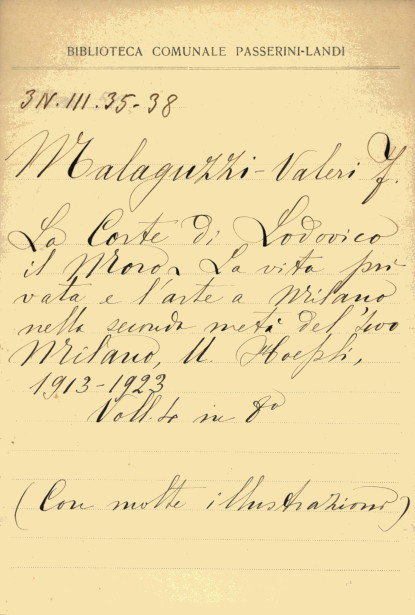 BIBLIOTECA COMUNALE PASSERINI-LANDI
3N.III.35-38
Malaguzzi-Valeri F.
La Corte di Lodovico
il Moro. La vita pri
vata e l'arte a Milano
nella seconda metà del '400
Milano, U. Hoepli,
1913-1923
Voll. 4 in 8º
(Con molte illustrazioni)